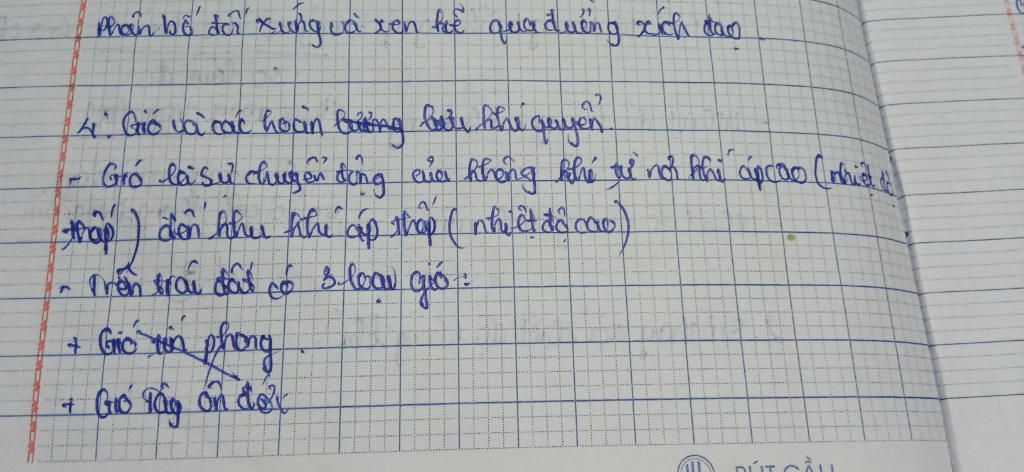 phân bố đối xứng và xen kẽ qua đường xích đạo
4: Gió và các hoàn lưu khí quyển.
- Gió là sự chuyển động của không khí từ nơi khí áp cao (nhiệt độ
thấp) đến khu khí áp thấp (nhiệt độ cao)
- Trên trái đất có 3 loại gió:
+ Gió tín phong.
+ Gió Tây ôn đới
BÚT CẦU